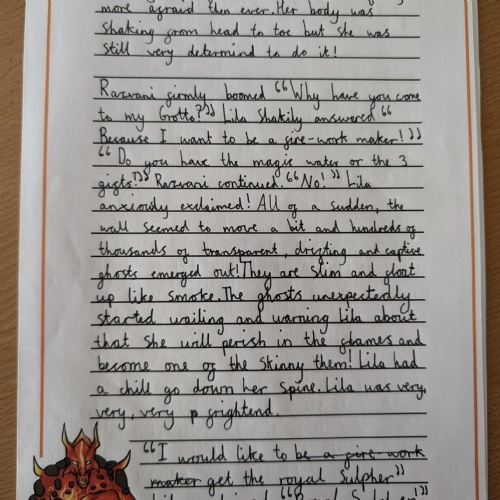 more afraid then ever. Her body was
shaking from head to toe but she was
still very determind to do it!
Razvani firmly boomed "Why have you come
to my Grotto?" Lila Shakily answered "
Because I want to be a fire-work maker!"
"Do you have the magic water or the 3
gifts?" Razvani continued. "No!" Lila
anxiously exclaimed! All of a sudden, the
wall seemed to move a bit and hundreds of
thousands of transparent, drifting and captive
ghosts emerged out! They are slim and float
up like smoke. The ghosts unexpectedly
started wailing and warning Lila about
that she will perish in the flames and
become one of the skinny them! Lila had
a chill go down her spine. Lila was very,
very, very p frightend.
"I would like to be a fire work
maker get the royal Sulpher"